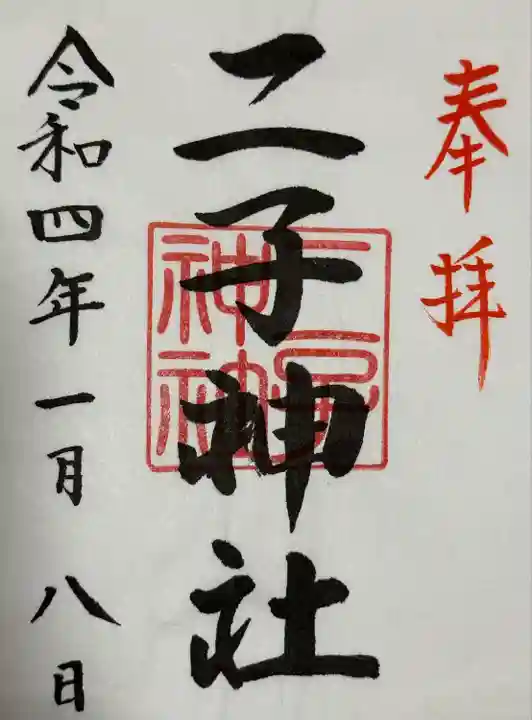 奉拝
二子神社
令和四年一月八日